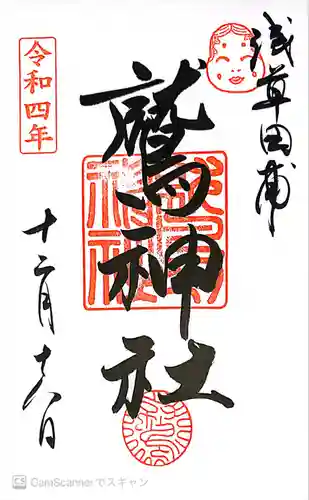 浅草田甫
鷲神社
令和四年
十二月十八日
CS CamScannerでスキャン